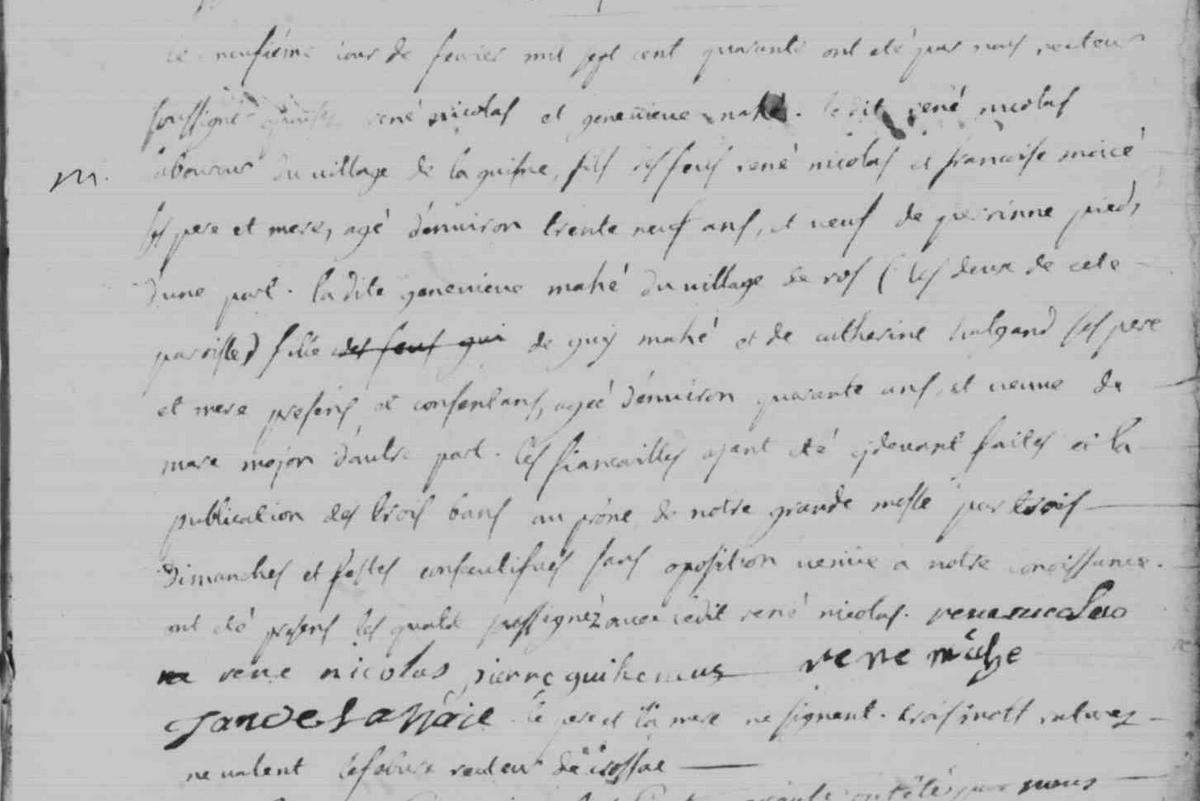 Le neufieme jour de fevrier mil sept cent quarante ont été par nous recteur
soussigné René nicolas et genevieve mahé. ledit rené nicolas
laboureur du village de la guisne, fils des feus rené nicolas et francoise moicé
ses pere et mere, agé d'environ trente neuf ans, et veuf de perrinne pied,
d'une part. ladite genevieve mahé du village de ros (les deux de cete
paroisse) fille des feus gui de guy mahé et de catherine ses pere
et mere presens et consentans, agée d'environ quarante ans, et veuve de
marc mojon d'autre part. les fiancailles ajant été cydevant faites et la
publication des trois bans au prône de notre grande messe par trois
dimanches et festes consecutifves sans oposition venue a notre conoissance.
ont été presens les quatre soussignéz avec ledit rené nicolas. rene nicolas
rene nicolas pierre guiheneus rene mahe
Jan de la Haie le pere et la mere ne signent. trois mots
ne valent lefebvre recteur de crossac
ont étés par nous
m.